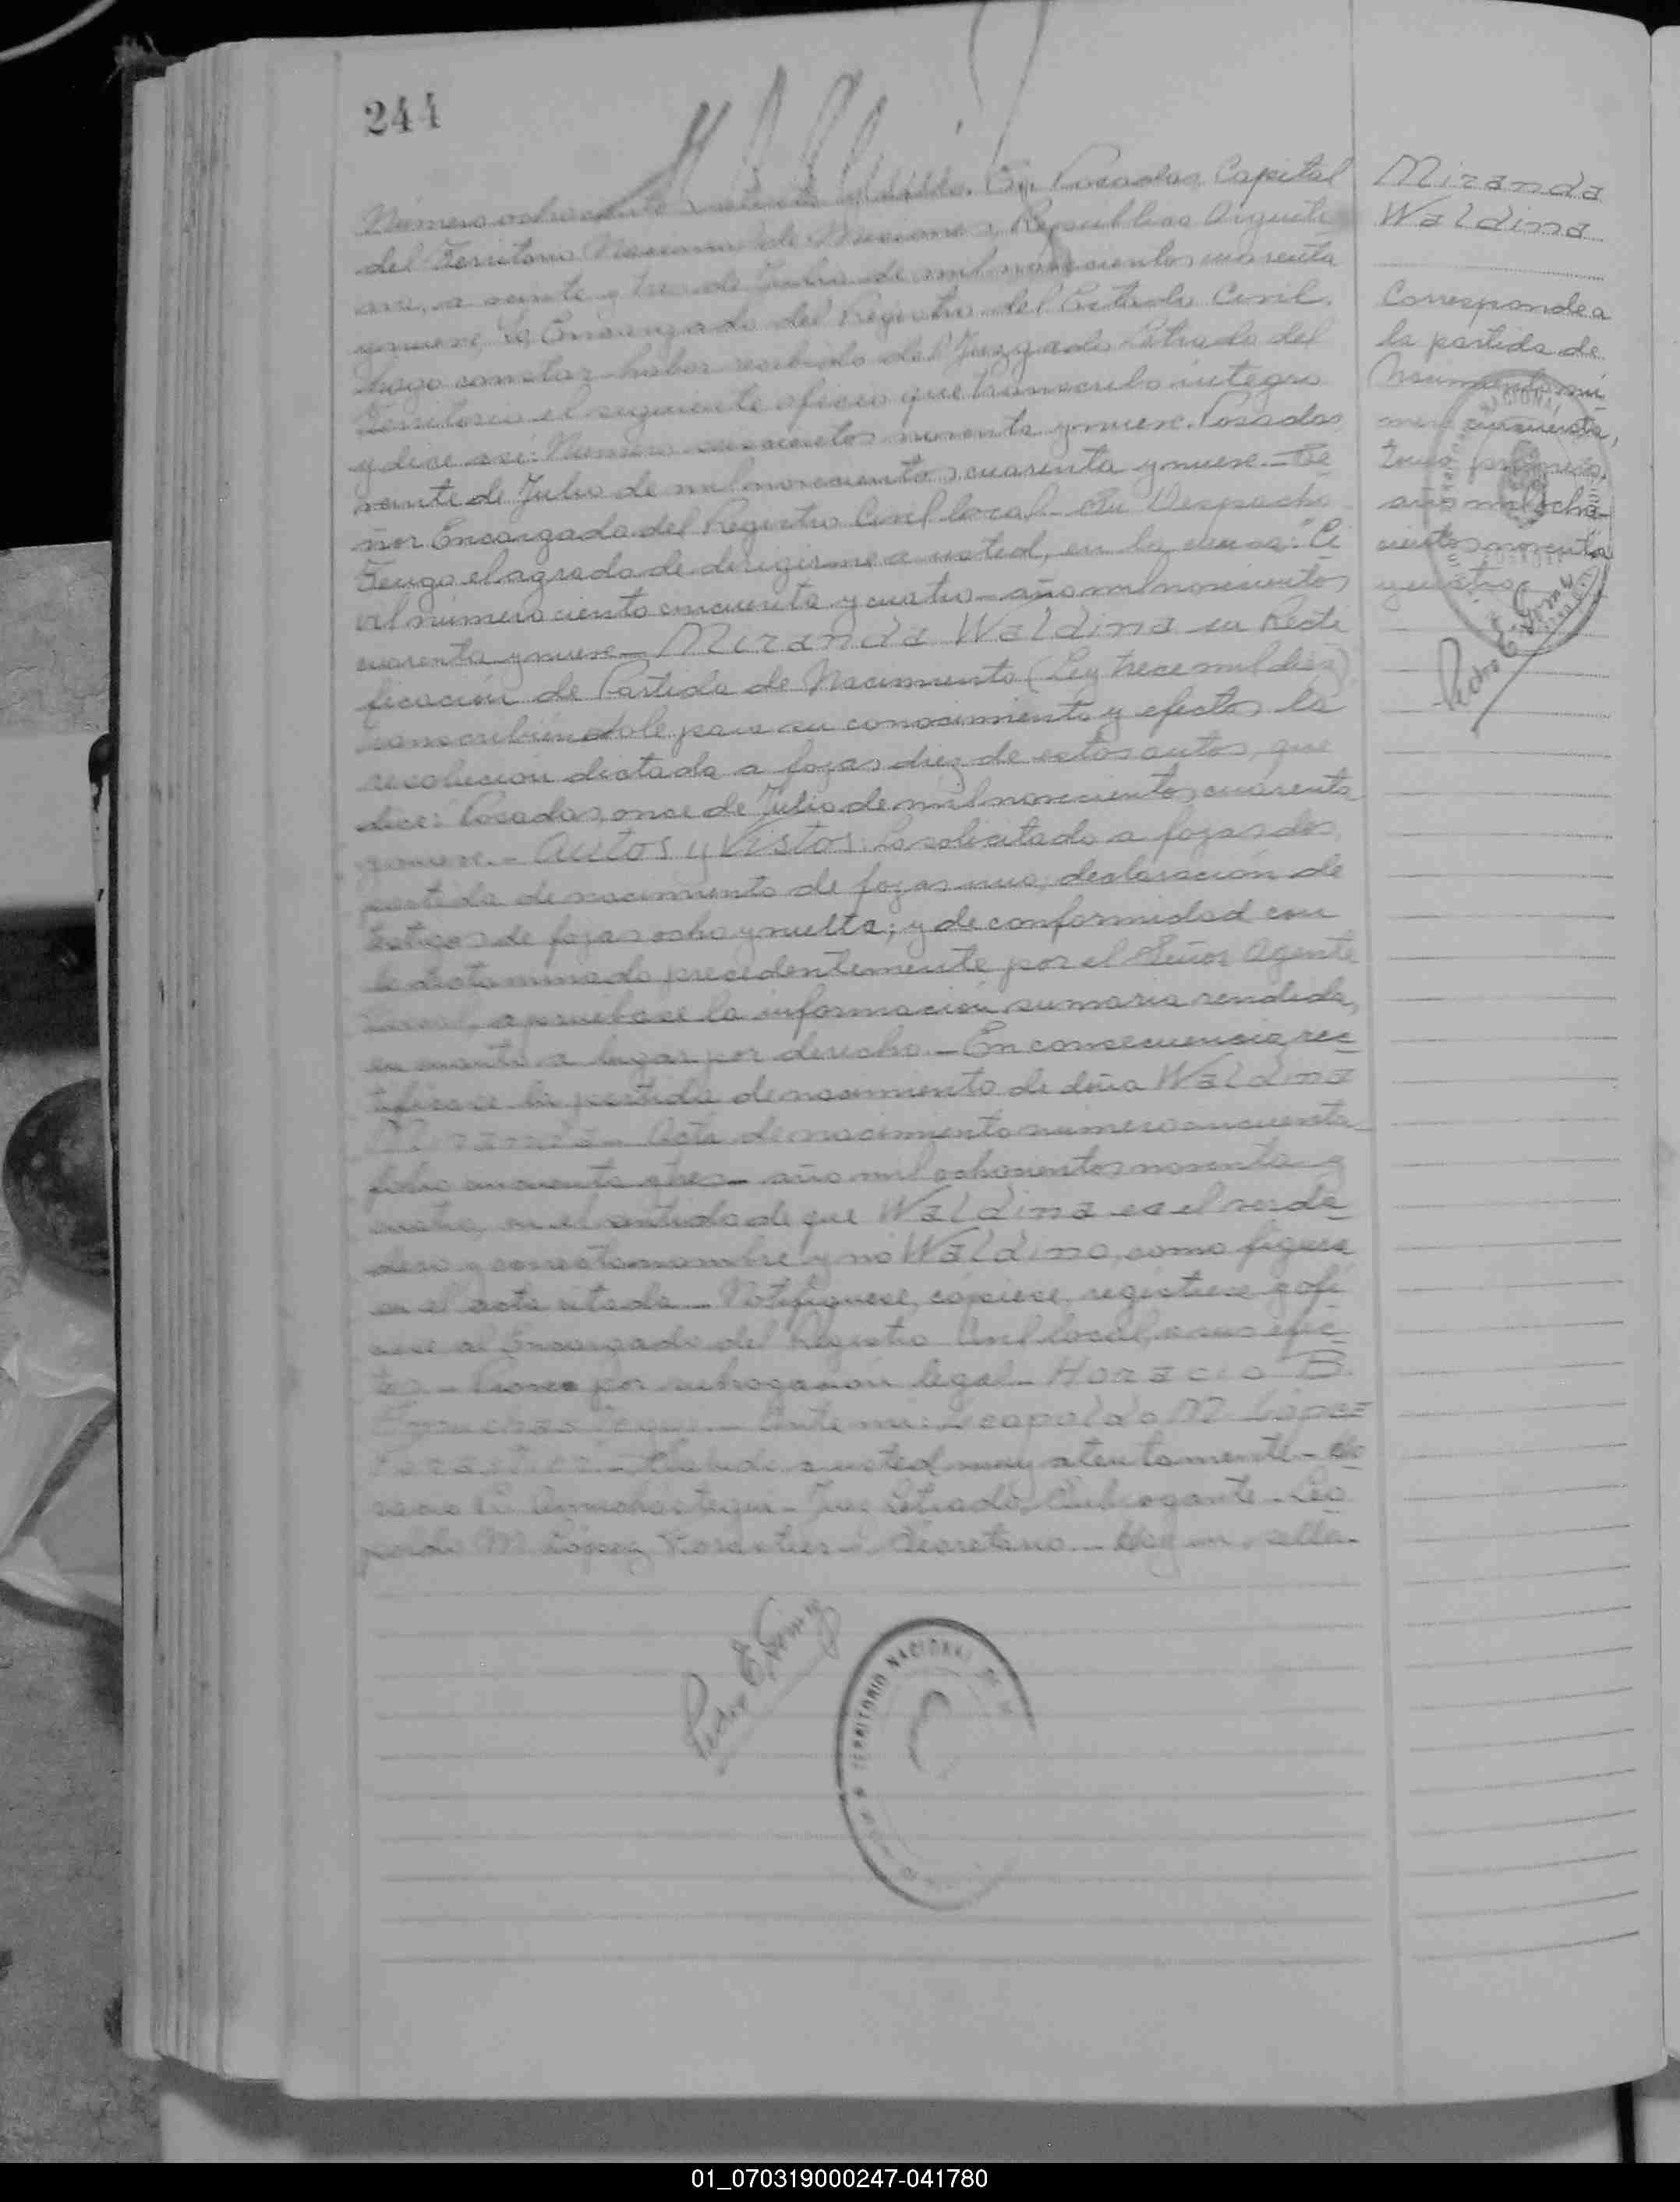 244
Número ochocientos setenta y Capital
del Territorio Nacional de Misiones, República Argenti-
na, a veinte y tres de Julio de mil novecientos cuarenta
y nueve, Yo Encargado del Registro del Estado Civil,
hago constar haber recibido del Juzgado Letrado del
Territorio el siguiente oficio que transcribo íntegro
y dice así: Número novecientos noventa y nueve. Posadas
veinte de Julio de mil novecientos cuarenta y nueve.- Se
ñor Encargado del Registro Civil local- Su Despacho
Tengo el agrado de dirigirme a usted, en la causa: "Ci
vil número ciento cincuenta y cuatro - año mil novecientos
cuarenta y nueve - Miranda Waldina su Recti
ficación de Partida de Nacimiento (Ley trece mil diez)
transcribiéndole para su conocimiento y efectos la
resolución dictada a fojas diez de estos autos, que
dice: Posadas, once de Julio de mil novecientos cuarenta
y nueve.- Autos y Vistos: Lo solicitado a fojas dos,
partida de nacimiento de fojas uno, declaración de
testigos de fojas ocho y vuelta; y de conformidad con
lo dictaminado precedentemente por el Señor Agente
Fiscal, apruébase la información sumaria rendida,
en cuanto a lugar por derecho.- En consecuencia, rec-
tifícase la partida de nacimiento de doña Waldina
Miranda - Acta de nacimiento número cincuenta-
folio cincuenta y tres - año mil ochocientos noventa y
cuatro, en el sentido de que Waldina es el verda-
dero y correcto nombre y no Waldino, como figura
en el acta citada.- Notifíquese, cópiese, regístrese y ofí
ciese al Encargado del Registro Civil local, a sus efec-
tos.- Proveo por subrogación legal- Horacio B.
Ante mí: Leopoldo M. López
Forastier.- Saludo a usted muy atentamente.- Ho
racio B. Amuchástegui- Juez Letrado, Subrogante- Leo
poldo M. López Forastier- Secretario.- Hay un sello.-
Pedro E. Gomez
TERRITORIO NACIONAL DE
Miranda
Waldina
Corresponde a
la partida de
Nacimiento nú-
mero cincuenta,
tomo primero,
año mil ocho-
cientos noventa
y cuatro
NACIONAL
Pedro E. Gomez
01_070319000247-041780